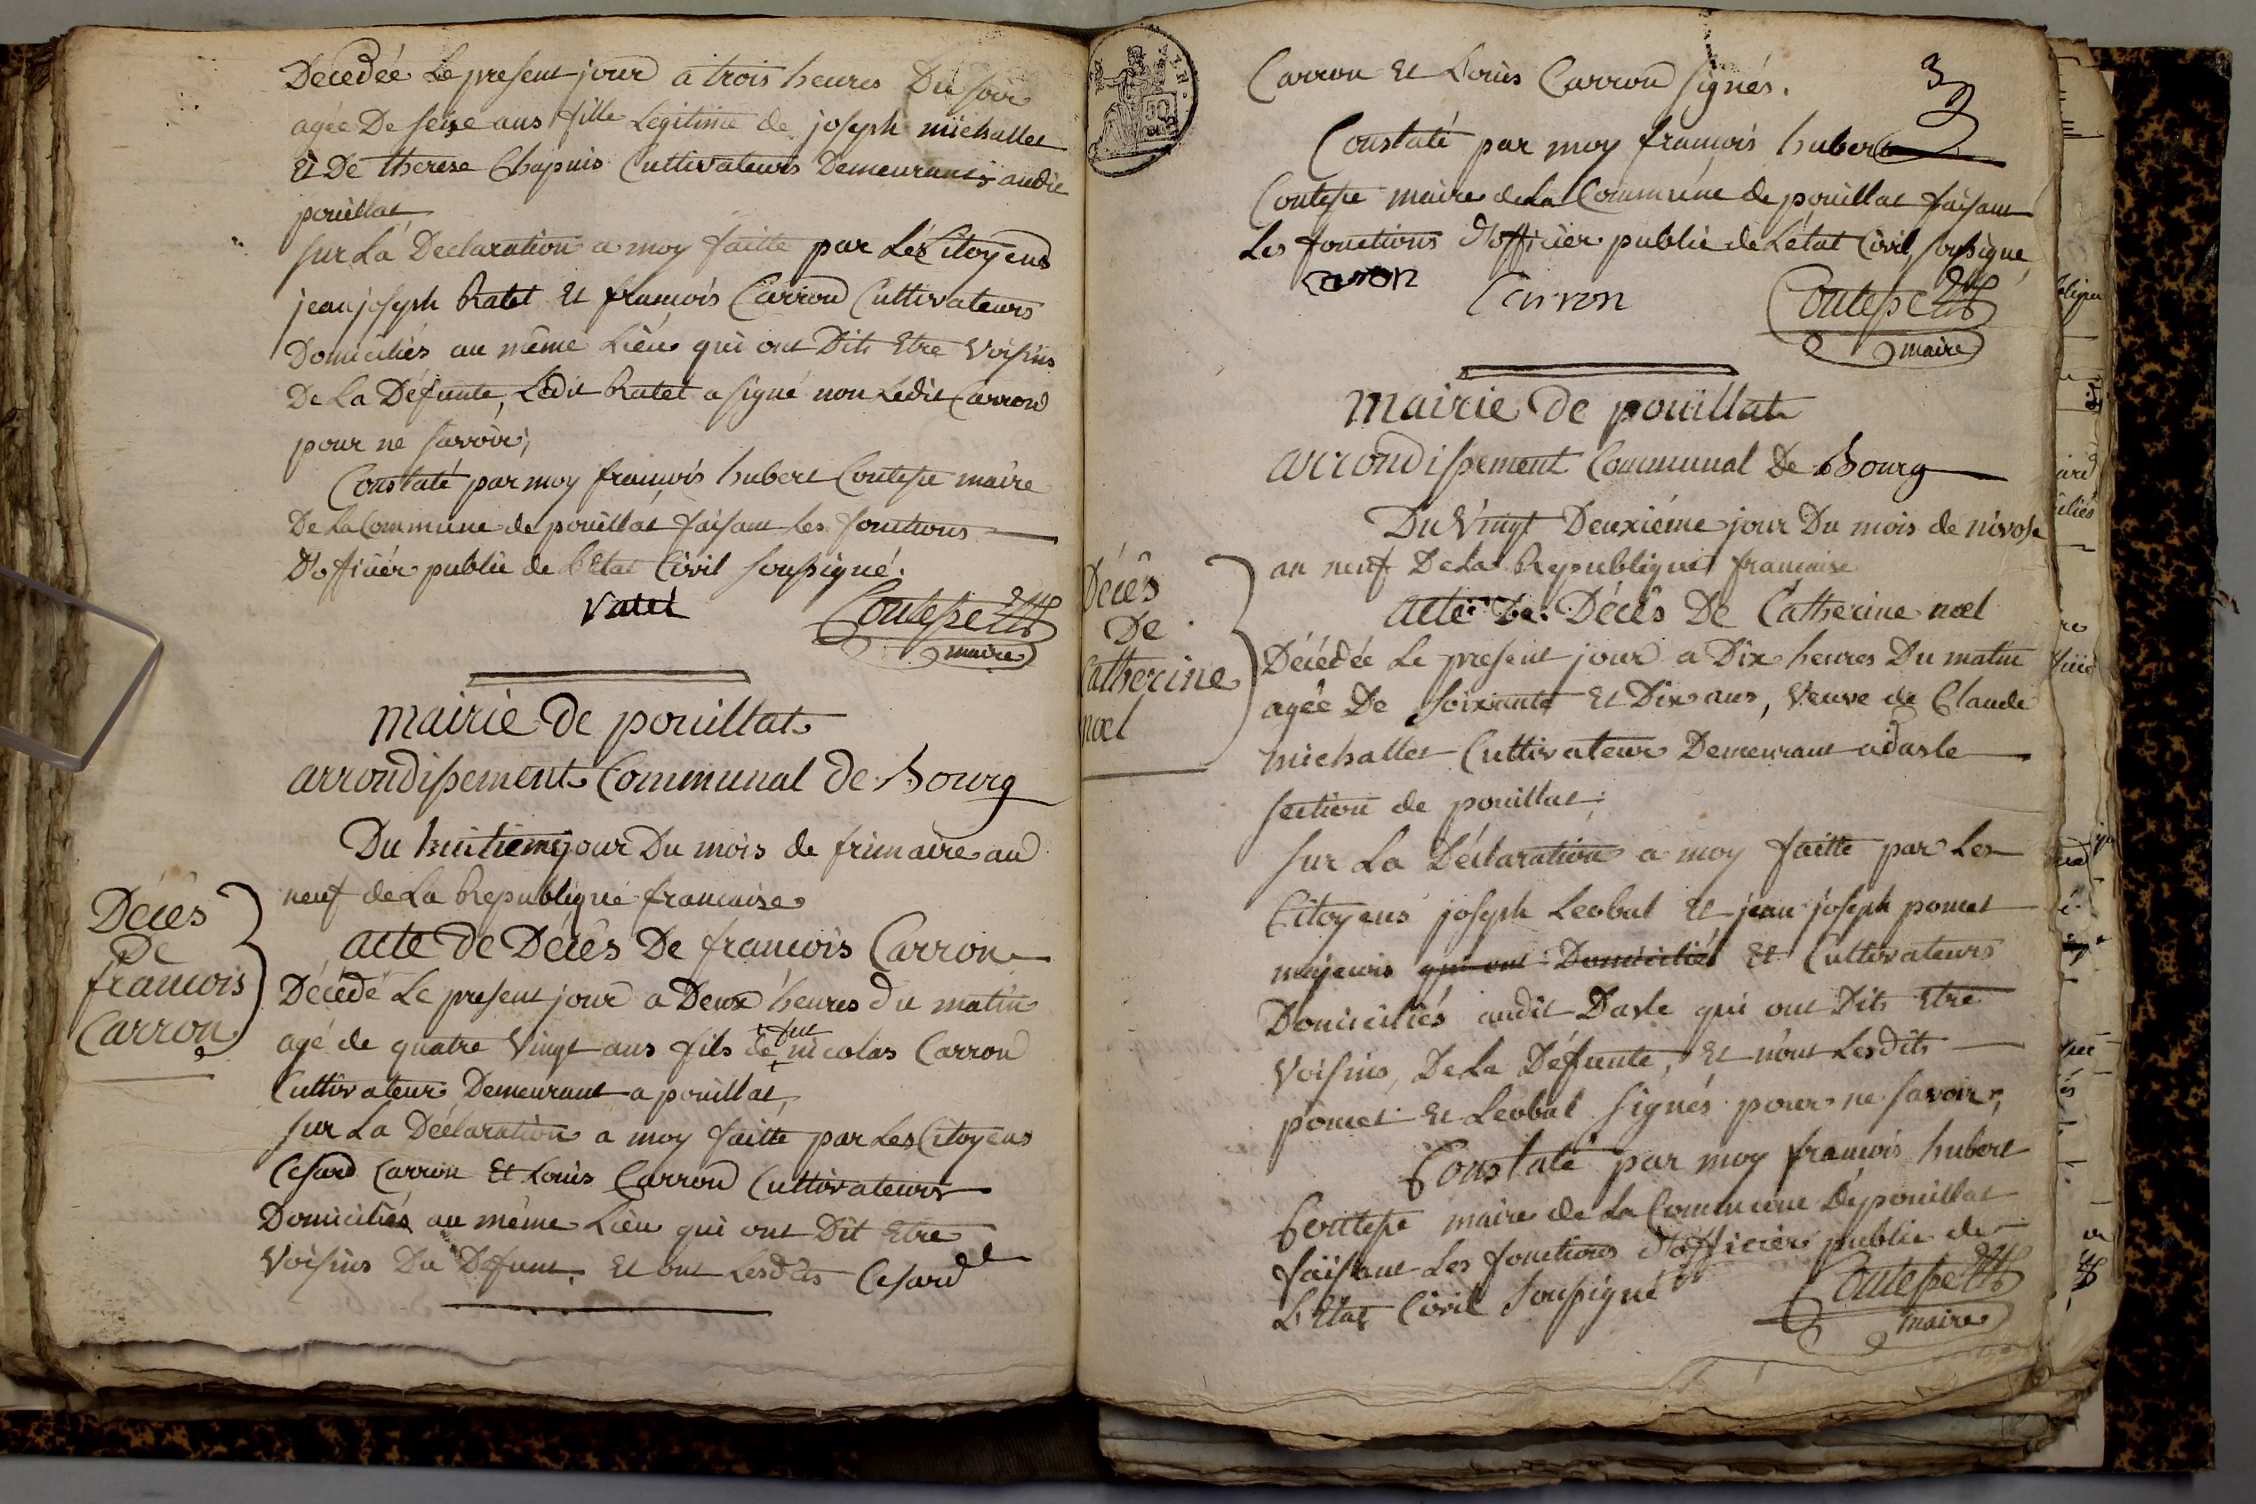 Décedée Le present jour a trois heures Du soir
agée De seize ans fille Legitime de joseph michallet
Et De therese Chapuis Cultivateurs Demeurants audit
pouillat
sur La Declaration a moy faitte par Les Citoyens
jean joseph Ratel Et francois Carron Cultivateurs
Domiciliés au même Lieu qui ont Dits Etre Voisins
De La Défunte, Ledit Ratel a signé non Ledit Carron
pour ne savoir;
Constaté par moy francois hubert Coutepe maire
De La Commune de pouillat faisant Les fonctions
D'officier public de L'Etat Civil soussigné.
Ratel
Coutepe
maire
mairie De pouillat
arrondissement Communal de Bourg
Du huitieme jour Du mois de frimaire an
neuf de La Republique francaise
Décès
De
francois
Carron
acte de Décès De francois Carron
Décédé Le present jour a Deux heures du matin
agé de quatre Vingt ans fils de feu nicolas Carron
Cultivateur Demeurant a pouillat,
sur La Déclaration a moy faitte par Les Citoyens
Cesard Carron Et Louis Carron Cultivateurs
Domiciliés au même Lieu qui ont Dit Etre
Voisins Du Defunt, Et ont Lesdits Cesard
3
Carron Et Louis Carron signés.
Constaté par moy francois hubert
Coutepe maire de La Commune de pouillat faisant
Les fonctions d'officier public de L'état Civil soussigné
caron
Carron
Coutepe
maire
mairie De pouillat
arrondissement Communal De Bourg
Du Vingt Deuxiéme jour Du mois de nivose
an neuf De La Republique francaise
Décès
De
Catherine
noel
acte De Décès De Catherine noel
Décédée Le present jour a Dix heures Du matin
agée De soixante Et Dix ans, Veuve de Claude
michallet Cultivateur Demeurant a dasle
section de pouillat;
sur La Déclaration a moy faitte par Les
Citoyens joseph Leobal Et jean joseph pomet
majeurs qui ont Domiciliés Et Cultivateurs
Domiciliés audit Dasle qui ont Dits Etre
Voisins De La Défunte, Et n'ont Lesdits
pomet Et Leobal signés pour ne savoir;
Constaté par moy francois hubert
Coutepe maire de La Commune de pouillat
faisant Les fonctions d'officier public de
L'Etat Civil soussigné
Coutepe
maire